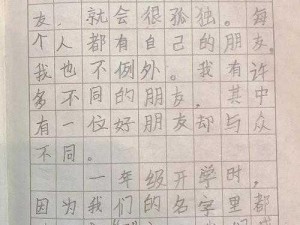 友，就会很孤独。每
个人都有自己的朋友，
我也不例外。我有许
多不同的朋友，其中
有一位好朋友却与众
不同。
一年级开学时，
因为我们的名字里都